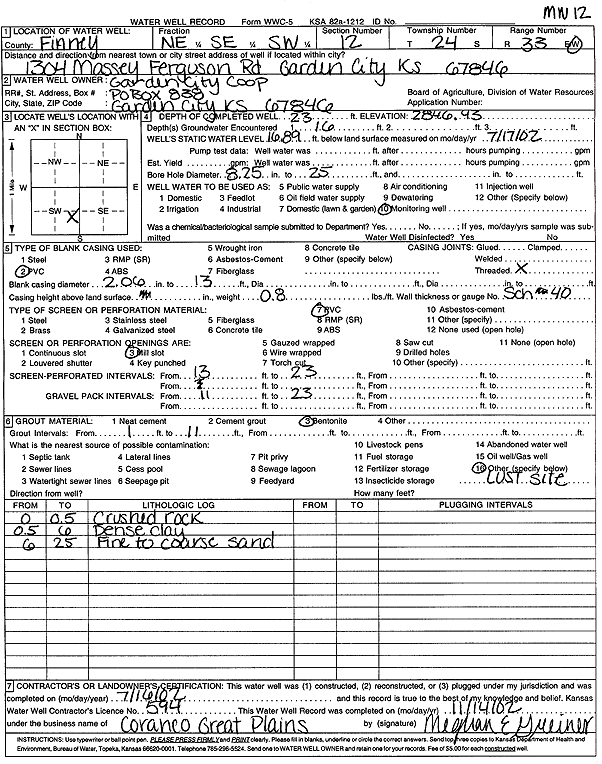 MW12
WATER WELL RECORD Form WWC-5 KSA 82a-1212 ID No.
1 LOCATION OF WATER WELL: Fraction Section Number Township Number Range Number
County: Finney NE ¼ SE ¼ SW ¼ 12 T 24 S R 33 E/W
Distance and direction from nearest town or city street address of well if located within city?
1304 Massey Ferguson Rd Garden City Ks 67846
2 WATER WELL OWNER: Garden City Coop
RR#, St. Address, Box # : PO Box 838 Board of Agriculture, Division of Water Resources
City, State, ZIP Code : Garden City KS 67846 Application Number:
3 LOCATE WELL'S LOCATION WITH AN "X" IN SECTION BOX:
N
NW NE
W E
SW SE
X
S
1 Mile
4 DEPTH OF COMPLETED WELL 23 ft. ELEVATION: 2846.93
Depth(s) Groundwater Encountered 1 16 ft. 2 ft. 3 ft.
WELL'S STATIC WATER LEVEL 16.89 ft. below land surface measured on mo/day/yr 7/17/02
Pump test data: Well water was ft. after hours pumping gpm
Est. Yield gpm: Well water was ft. after hours pumping gpm
Bore Hole Diameter 8.25 in. to 25 ft., and in. to ft.
WELL WATER TO BE USED AS: 5 Public water supply 8 Air conditioning 11 Injection well
1 Domestic 3 Feedlot 6 Oil field water supply 9 Dewatering 12 Other (Specify below)
2 Irrigation 4 Industrial 7 Domestic (lawn & garden) 10 Monitoring well
Was a chemical/bacteriological sample submitted to Department? Yes No ; If yes, mo/day/yrs sample was submitted
Water Well Disinfected? Yes No
5 TYPE OF BLANK CASING USED: 5 Wrought iron 8 Concrete tile CASING JOINTS: Glued Clamped
1 Steel 3 RMP (SR) 6 Asbestos-Cement 9 Other (specify below) Welded
2 PVC 4 ABS 7 Fiberglass Threaded X
Blank casing diameter 2.06 in. to 13 ft., Dia in. to ft., Dia in. to ft.
Casing height above land surface in., weight 0.8 lbs./ft. Wall thickness or gauge No. Sch 40
TYPE OF SCREEN OR PERFORATION MATERIAL: 7 PVC 10 Asbestos-cement
1 Steel 3 Stainless steel 5 Fiberglass 8 RMP (SR) 11 Other (specify)
2 Brass 4 Galvanized steel 6 Concrete tile 9 ABS 12 None used (open hole)
SCREEN OR PERFORATION OPENINGS ARE: 5 Gauzed wrapped 8 Saw cut 11 None (open hole)
1 Continuous slot 3 Mill slot 6 Wire wrapped 9 Drilled holes
2 Louvered shutter 4 Key punched 7 Torch cut 10 Other (specify)
SCREEN-PERFORATED INTERVALS: From 13 ft. to 23 ft., From ft. to ft.
From ft. to ft., From ft. to ft.
GRAVEL PACK INTERVALS: From 11 ft. to 23 ft., From ft. to ft.
From ft. to ft., From ft. to ft.
6 GROUT MATERIAL: 1 Neat cement 2 Cement grout 3 Bentonite 4 Other
Grout Intervals: From 1 ft. to 11 ft., From ft. to ft., From ft. to ft.
What is the nearest source of possible contamination: 10 Livestock pens 14 Abandoned water well
1 Septic tank 4 Lateral lines 7 Pit privy 11 Fuel storage 15 Oil well/Gas well
2 Sewer lines 5 Cess pool 8 Sewage lagoon 12 Fertilizer storage 16 Other (specify below)
3 Watertight sewer lines 6 Seepage pit 9 Feedyard 13 Insecticide storage LUST Site
Direction from well? How many feet?
FROM TO LITHOLOGIC LOG FROM TO PLUGGING INTERVALS
0 0.5 Crushed rock
0.5 6 Dense clay
6 25 Fine to coarse sand
7 CONTRACTOR'S OR LANDOWNER'S CERTIFICATION: This water well was (1) constructed, (2) reconstructed, or (3) plugged under my jurisdiction and was
completed on (mo/day/year) 7/16/02 and this record is true to the best of my knowledge and belief. Kansas
Water Well Contractor's Licence No. 594 This Water Well Record was completed on (mo/day/yr) 11/14/02
under the business name of Coranco Great Plains by (signature) Meghan E Greiner
INSTRUCTIONS: Use typewriter or ball point pen. PLEASE PRESS FIRMLY and PRINT clearly. Please fill in blanks, underline or circle the correct answers. Send top three copies to Kansas Department of Health and
Environment, Bureau of Water, Topeka, Kansas 66620-0001. Telephone 785-296-5524. Send one to WATER WELL OWNER and retain one for your records. Fee of $5.00 for each constructed well.